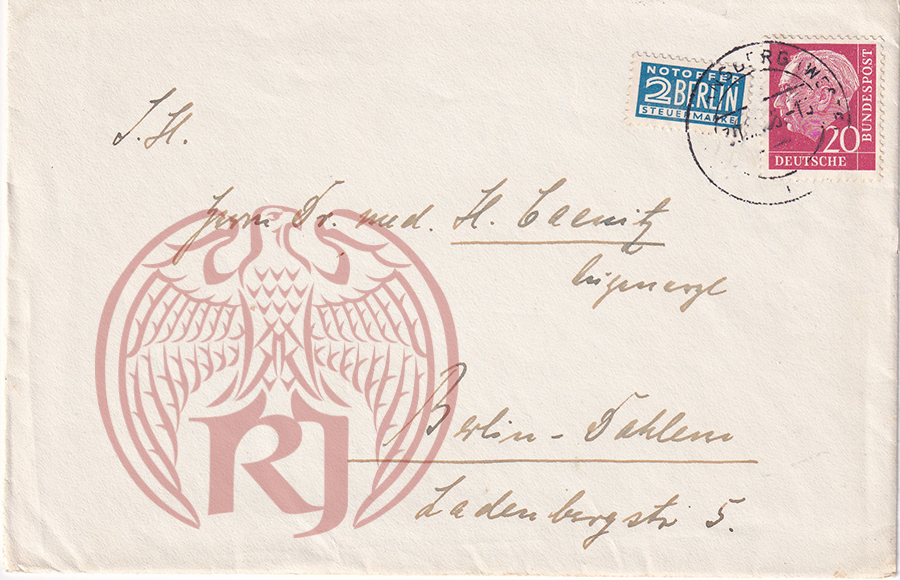 NOTOPFER
2 BERLIN
STEUERMARKE
BUNDESPOST
20
DEUTSCHE
S. H.
Herrn Dr. med. H.
Augenarzt
Berlin - Dahlem
Ladenbergstr 5.
RJ